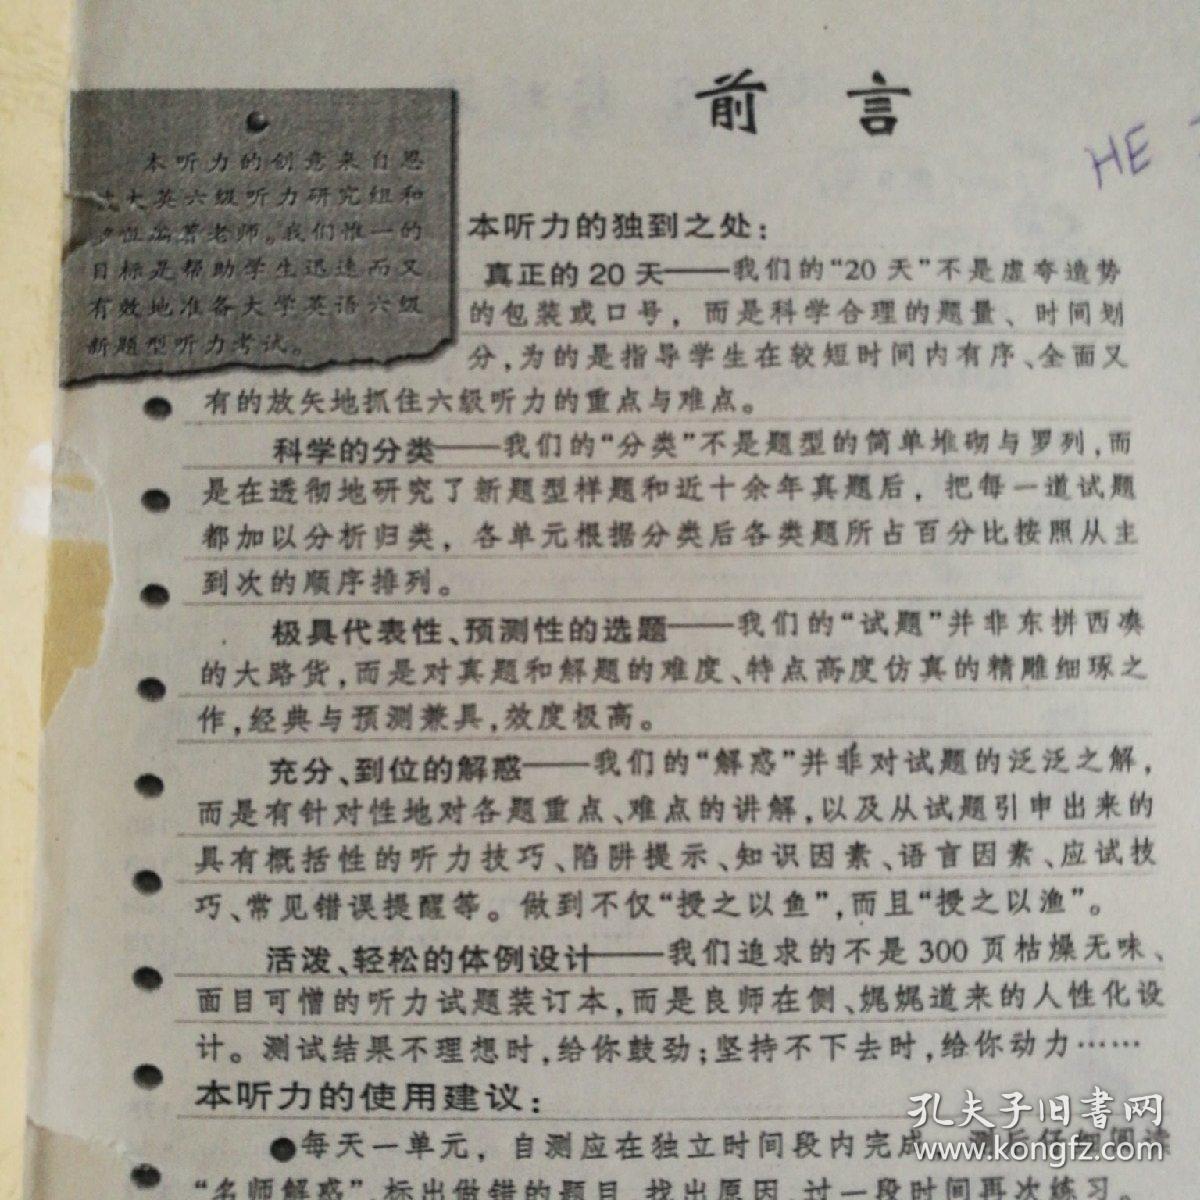 前言
HE
本听力的创意来自恩
大英六级听力研究组和
老师。我们惟一的
目标是帮助学生迅速而又
有效地准备大学英语六级
新题型听力考试。
本听力的独到之处：
真正的20天——我们的“20天”不是虚夸造势
的包装或口号，而是科学合理的题量、时间划
分，为的是指导学生在较短时间内有序、全面又
有的放矢地抓住六级听力的重点与难点。
科学的分类——我们的“分类”不是题型的简单堆砌与罗列，而
是在透彻地研究了新题型样题和近十余年真题后，把每一道试题
都加以分析归类，各单元根据分类后各类题所占百分比按照从主
到次的顺序排列。
极具代表性、预测性的选题——我们的“试题”并非东拼西凑
的大路货，而是对真题和解题的难度、特点高度仿真的精雕细琢之
作，经典与预测兼具，效度极高。
充分、到位的解惑——我们的“解惑”并非对试题的泛泛之解，
而是有针对性地对各题重点、难点的讲解，以及从试题引申出来的
具有概括性的听力技巧、陷阱提示、知识因素、语言因素、应试技
巧、常见错误提醒等。做到不仅“授之以鱼”，而且“授之以渔”。
活泼、轻松的体例设计——我们追求的不是300页枯燥无味、
面目可憎的听力试题装订本，而是良师在侧、娓娓道来的人性化设
计。测试结果不理想时，给你鼓劲；坚持不下去时，给你动力……
本听力的使用建议：
●每天一单元，自测应在独立时间段内完成
“名师解惑”，标出做错的题目，找出原因，过一段时间再次练习。
孔夫子旧书网
www.kongfz.com